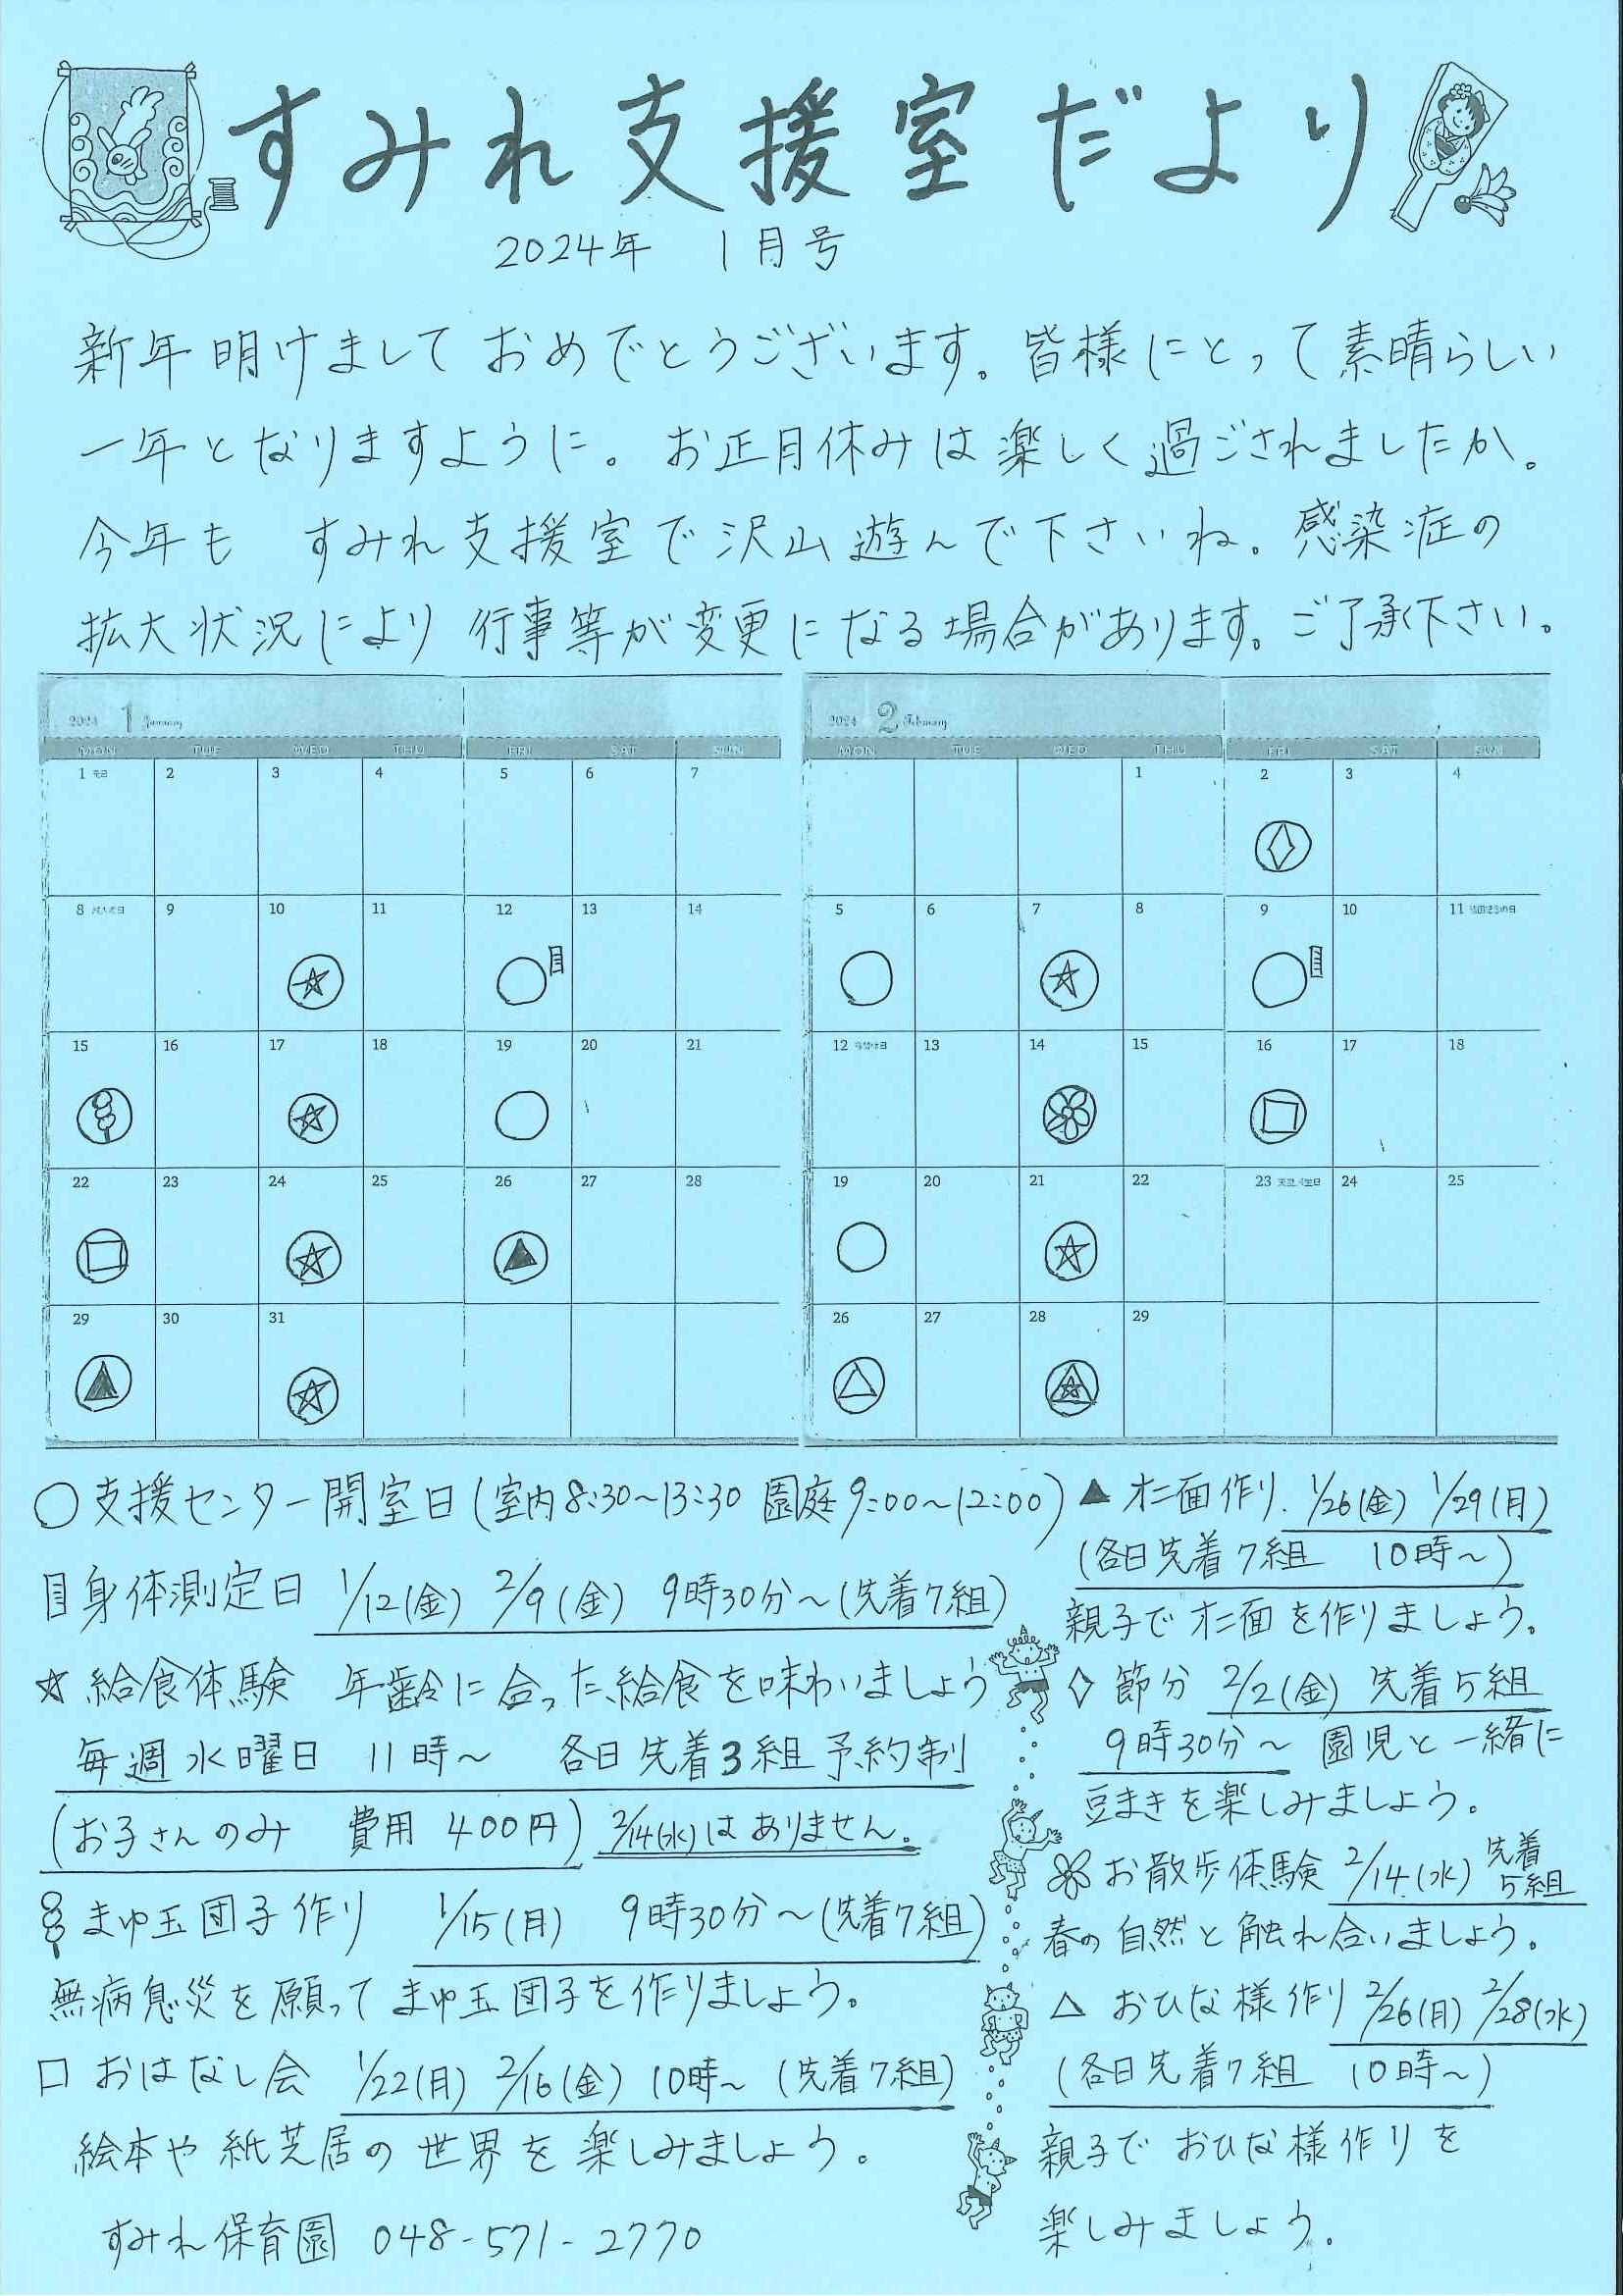 すみれ支援室だより
2024年 1月号
新年明けまして おめでとうございます。皆様にとって素晴らしい
一年となりますように。お正月休みは楽しく過ごされましたか。
今年も すみれ支援室で沢山遊んで下さいね。感染症の
拡大状況により 行事等が変更になる場合があります。ご了承下さい。
2024 1 January
MON TUE WED THU FRI SAT SUN
1 元日 2 3 4 5 6 7
8 成人の日 9 10 11 12 13 14
☆ 目
15 16 17 18 19 20 21
☆
22 23 24 25 26 27 28
□ ☆ ▲
29 30 31
▲ ☆
2024 2 February
MON TUE WED THU FRI SAT SUN
1 2 3 4
◇
5 6 7 8 9 10 11 建国記念の日
○ ☆ ○ 目
12 振替休日 13 14 15 16 17 18
□
19 20 21 22 23 天皇誕生日 24 25
○ ☆
26 27 28 29
△ ☆
○支援センター開室日(室内8:30~13:30 園庭9:00~12:00)
目身体測定日 1/12(金) 2/9(金) 9時30分~(先着7組)
☆給食体験 年齢に合った給食を味わいましょう
毎週水曜日 11時~ 各日先着3組予約制
(お子さんのみ 費用 400円) 2/14(水)はありません。
まゆ玉団子作り 1/15(月) 9時30分~(先着7組)
無病息災を願って まゆ玉団子を作りましょう。
□ おはなし会 1/22(月) 2/16(金) 10時~ (先着7組)
絵本や紙芝居の世界を楽しみましょう。
すみれ保育園 048-571-2770
▲ オニ面作り 1/26(金) 1/29(月)
(各日先着7組 10時~)
親子でオニ面を作りましょう。
◇ 節分 2/2(金) 先着5組
9時30分~ 園児と一緒に
豆まきを楽しみましょう。
お散歩体験 2/14(水) 先着5組
春の自然と触れ合いましょう。
△ おひな様作り 2/26(月) 2/28(水)
(各日先着7組 10時~)
親子で おひな様作りを
楽しみましょう。